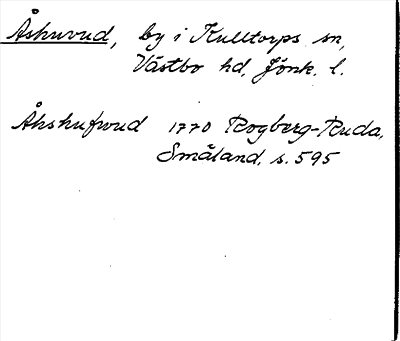 Åshuvud, by i Kulltorps sn,
Västbo hd, Jönk. l.
Åhshufwud 1770 Rogberg-Ruda,
Småland, s. 595